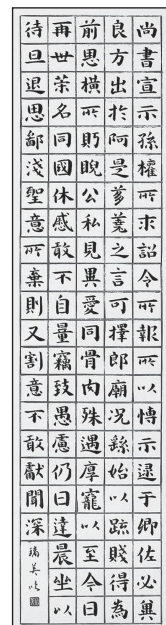 尚書宣示孫權所求詔令所報所以博示逮于卿佐必冀
良方出於阿是芻蕘之言可擇郎廟況繇始以疏賤得為
前思橫所眄睨公私見異愛同骨肉殊遇厚寵以至今日
再世荣名同國休慼敢不自量竊致愚慮仍日達晨坐以
待旦退思鄙淺聖意所棄則又割意不敢獻聞深